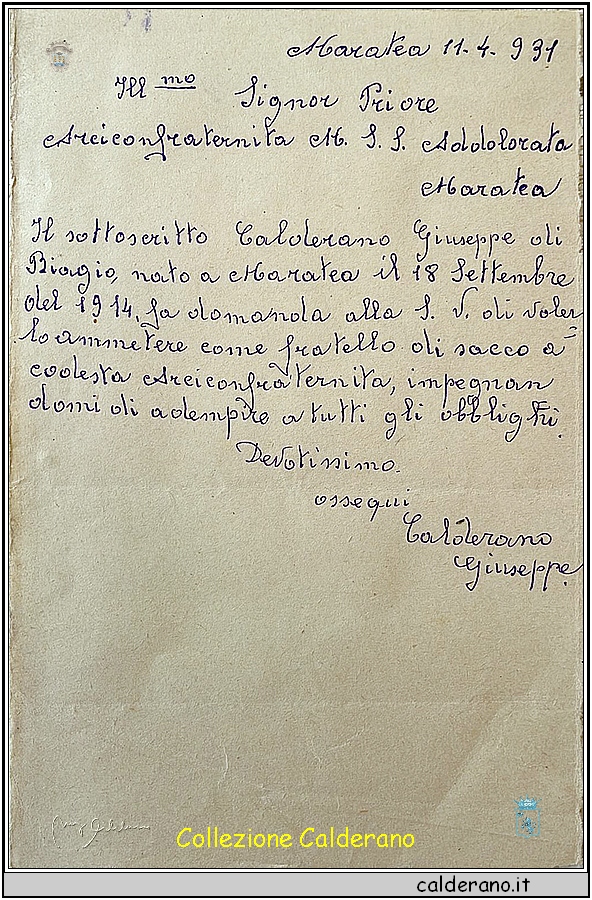 Maratea 11-4-931
Ill mo Signor Priore
Arciconfraternita M. S. S. Addolorata
Maratea
Il sottoscritto Calderano Giuseppe di
Biagio, nato a Maratea il 18 Settembre
del 1914, fa domanda alla S. V. di voler
lo ammetere come fratello di sacco a
codesta Arciconfraternita, impegnan
domi di adempire a tutti gli obblighi.
Devotissimo.
ossequi
Calderano
Giuseppe.
Collezione Calderano
calderano.it